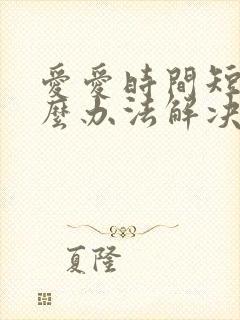 愛愛時間短
麼办法解决
夏隆